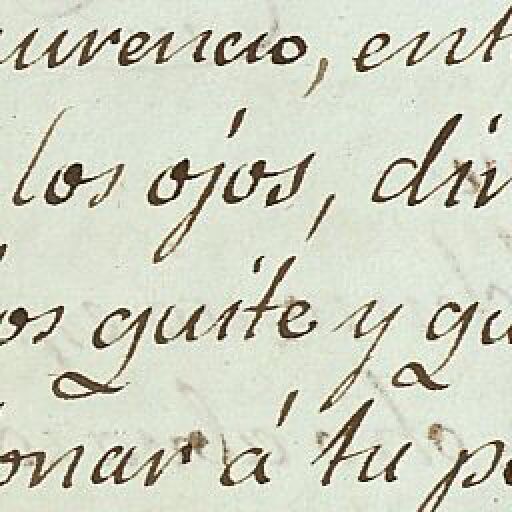 aurencio, ent
los ojos, dir
os quite y qu
onar á tu p